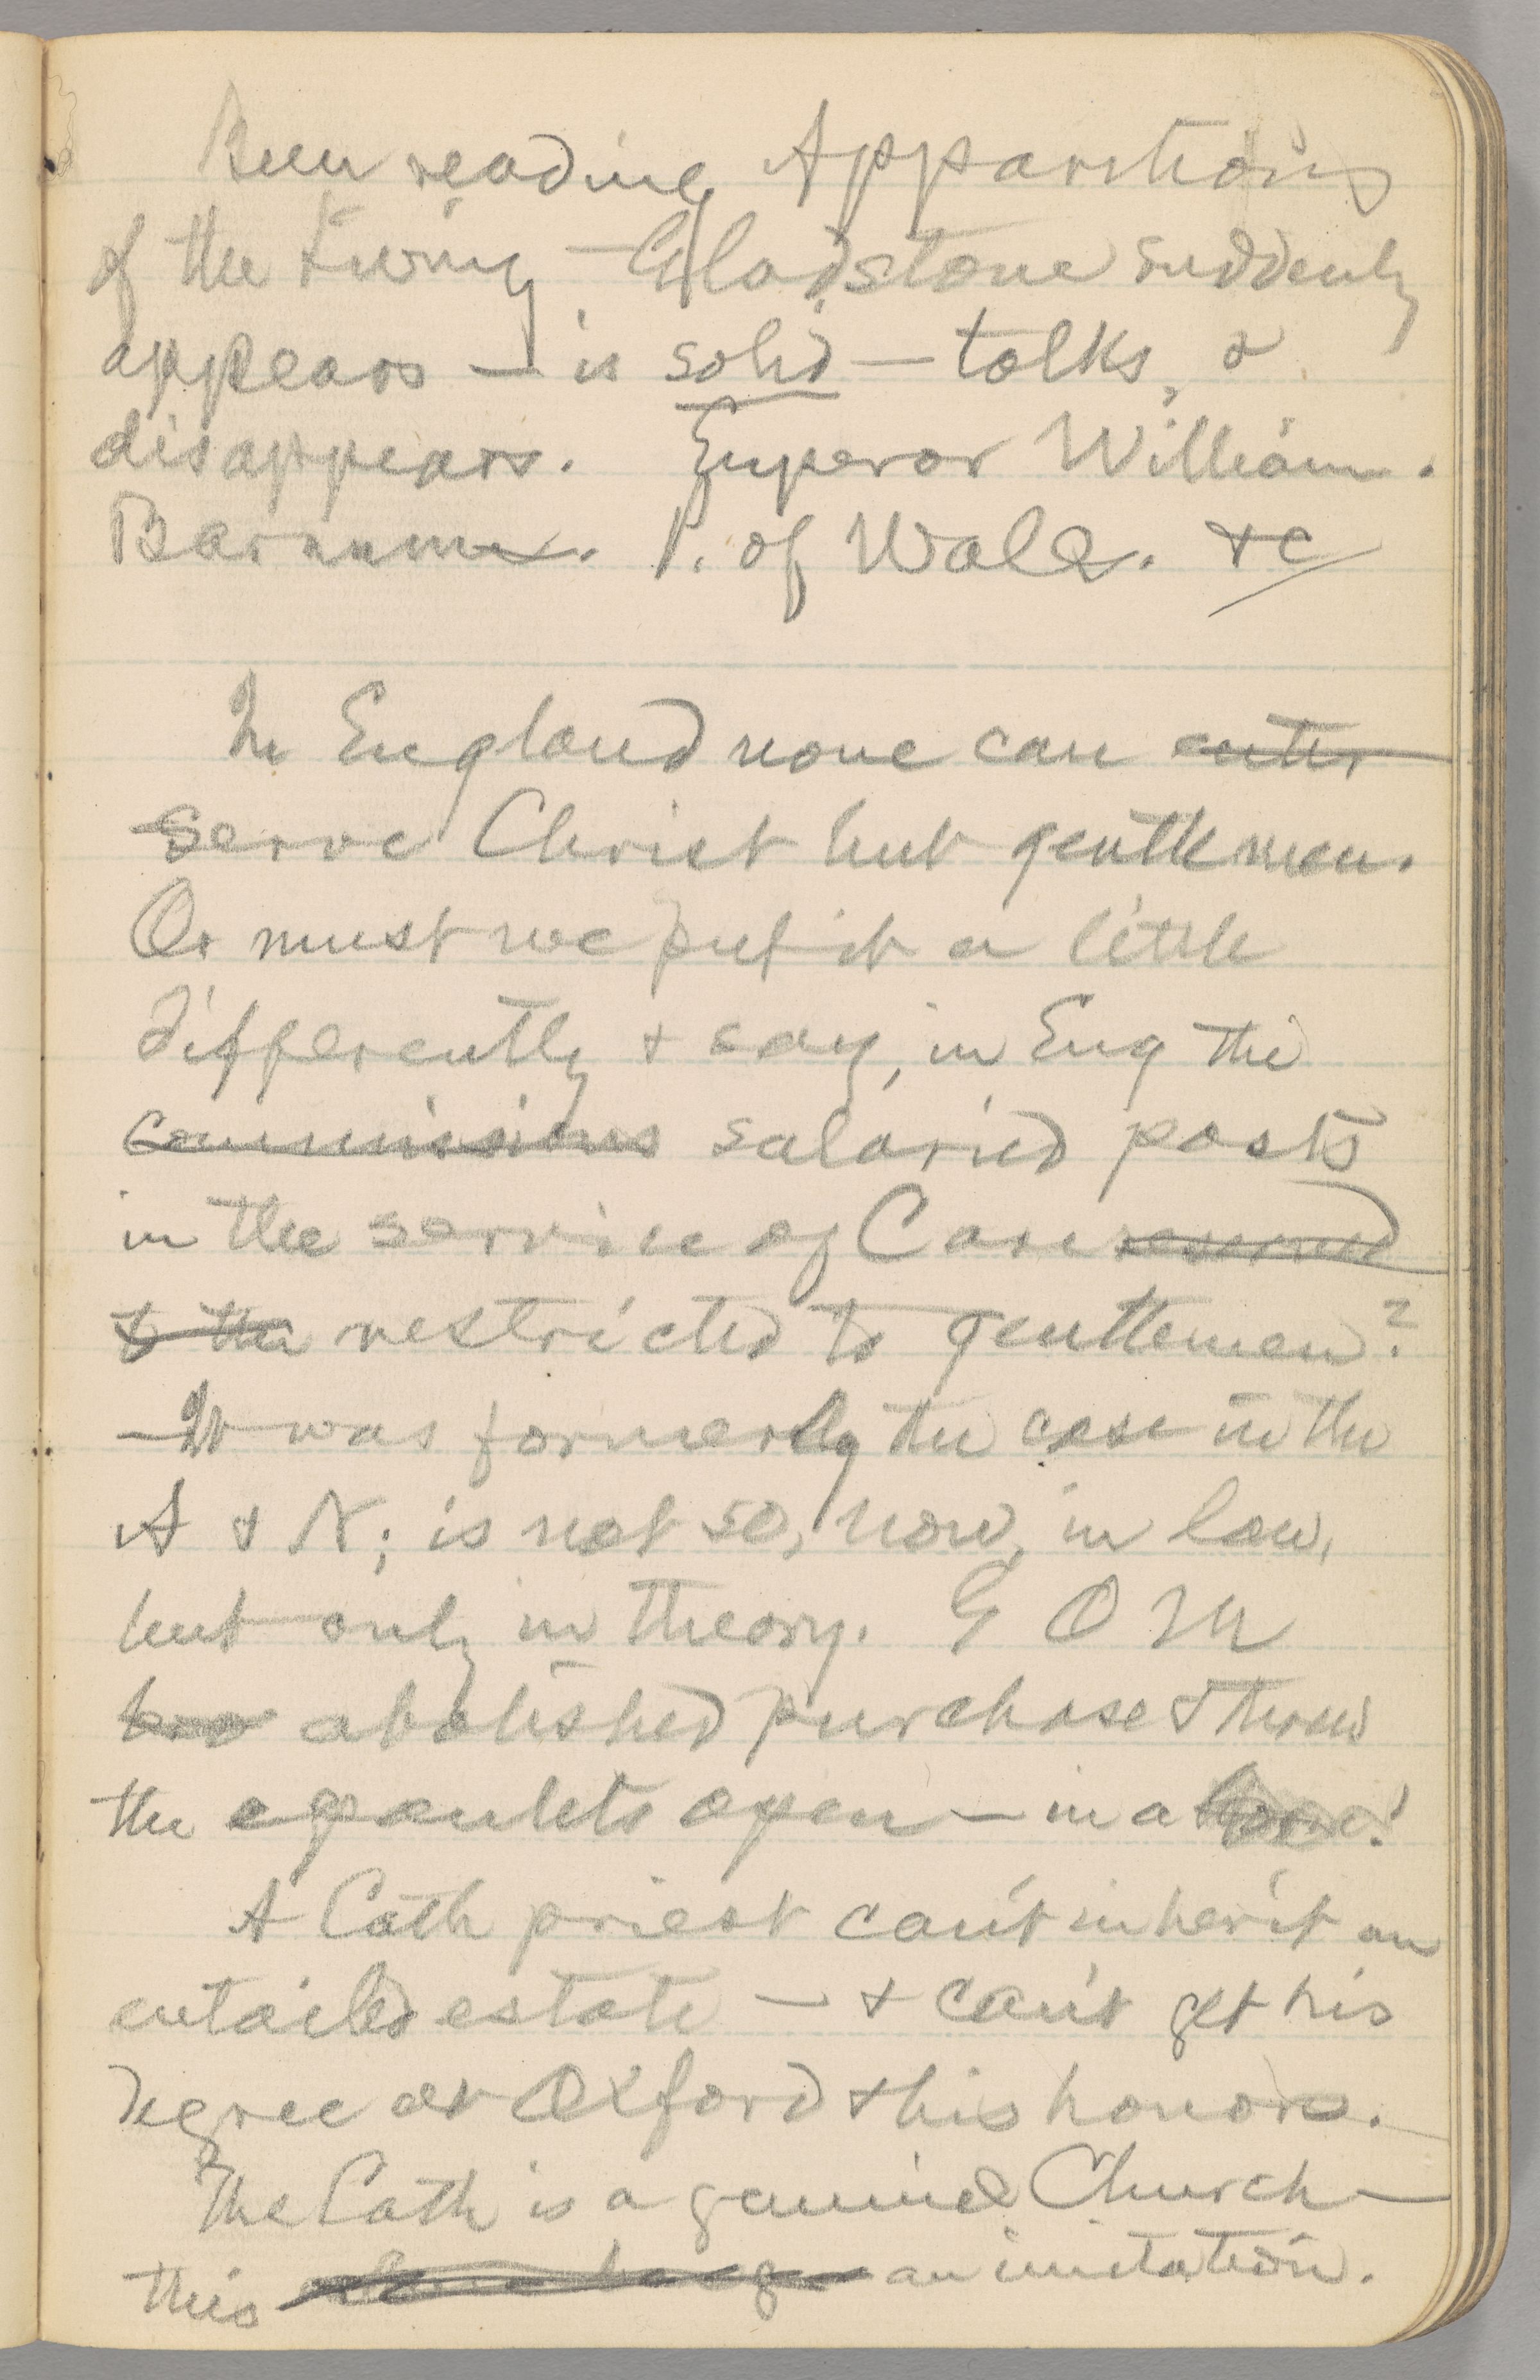 Been reading Apparitions
of the Living – Gladstone suddenly
appears — is solid — talks, &
disappears. Emperor William.
Barnum. P. of Wales. &c
In England none can enter
serve Christ but gentlemen.
Or must we put it a little
differently & say, in Eng the
commissions salaried posts
in the service of C are reserved
to the restricted to gentlemen?
—It was formerly the case in the
A & N; is not so, now, in law,
but only in theory. G O M
has abolished purchase & threw
the epaulets open — in a
A Cath priest can't inherit an
entailed estate — & can't get his
degree at Oxford & his honors.
The Cath is a genuine Church —
this an imitation.